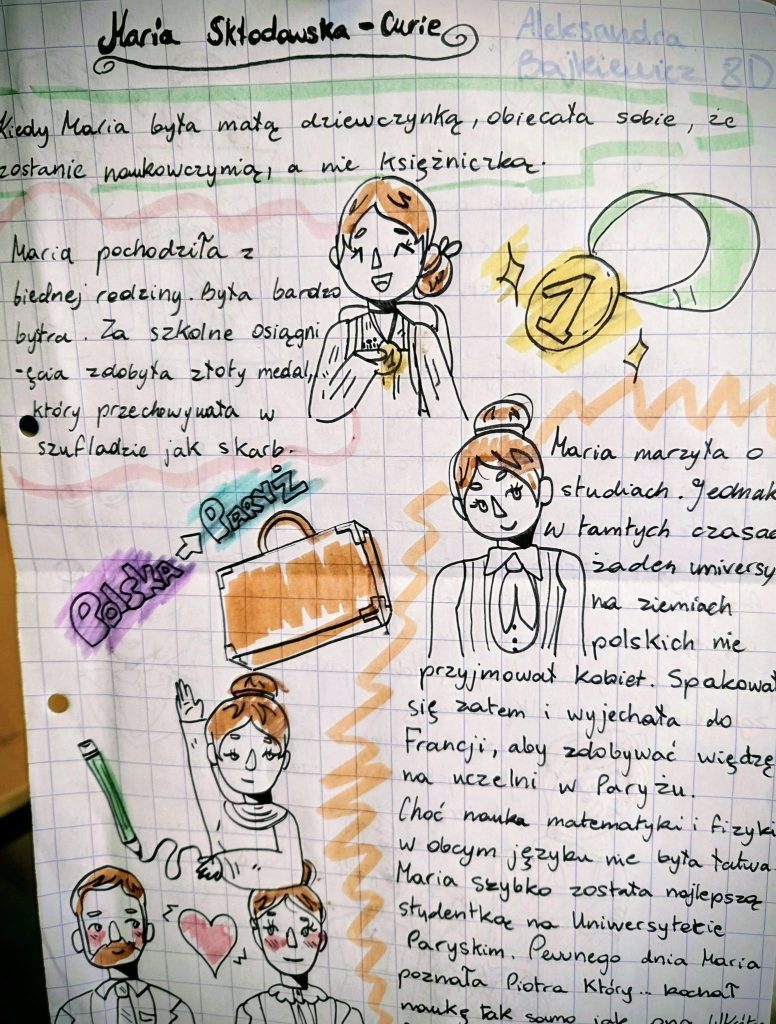 Maria Skłodowska - Curie
Aleksandra
Bajkiewicz 8D
Kiedy Maria była małą dziewczynką, obiecała sobie, że
zostanie naukowczynią, a nie księżniczką.
Maria pochodziła z
biednej rodziny. Była bardzo
bystra. Za szkolne osiągni
-ęcia zdobyła złoty medal,
który przechowywała w
szufladzie jak skarb.
1
1
Polska → Paryż
Maria marzyła o
studiach. Jednak
w tamtych czasac
żaden uniwersy
na ziemiach
polskich nie
przyjmował kobiet. Spakował
się zatem i wyjechała do
Francji, aby zdobywać więdzę
na uczelni w Paryżu.
Choć nauka matematyki i fizyki
w obcym języku nie była łatwa
Maria szybko została najlepszą
studentką na Uniwersytecie
Paryskim. Pewnego dnia Maria
poznała Piotra który... kochał
naukę tak samo jak ona